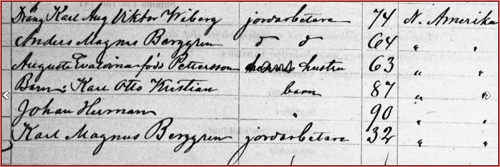 Dräng Karl Aug Viktor Wiberg jordarbetare 74 N. Amerika
Anders Magnus Berggren d d 64 " "
Augusta Evelina född Pettersson hans hustru 63 " "
Barn: Karl Otto Kristian barn 87 " "
Johan Herman " 90 " "
Karl Magnus Berggren jordarbetare 32 " "